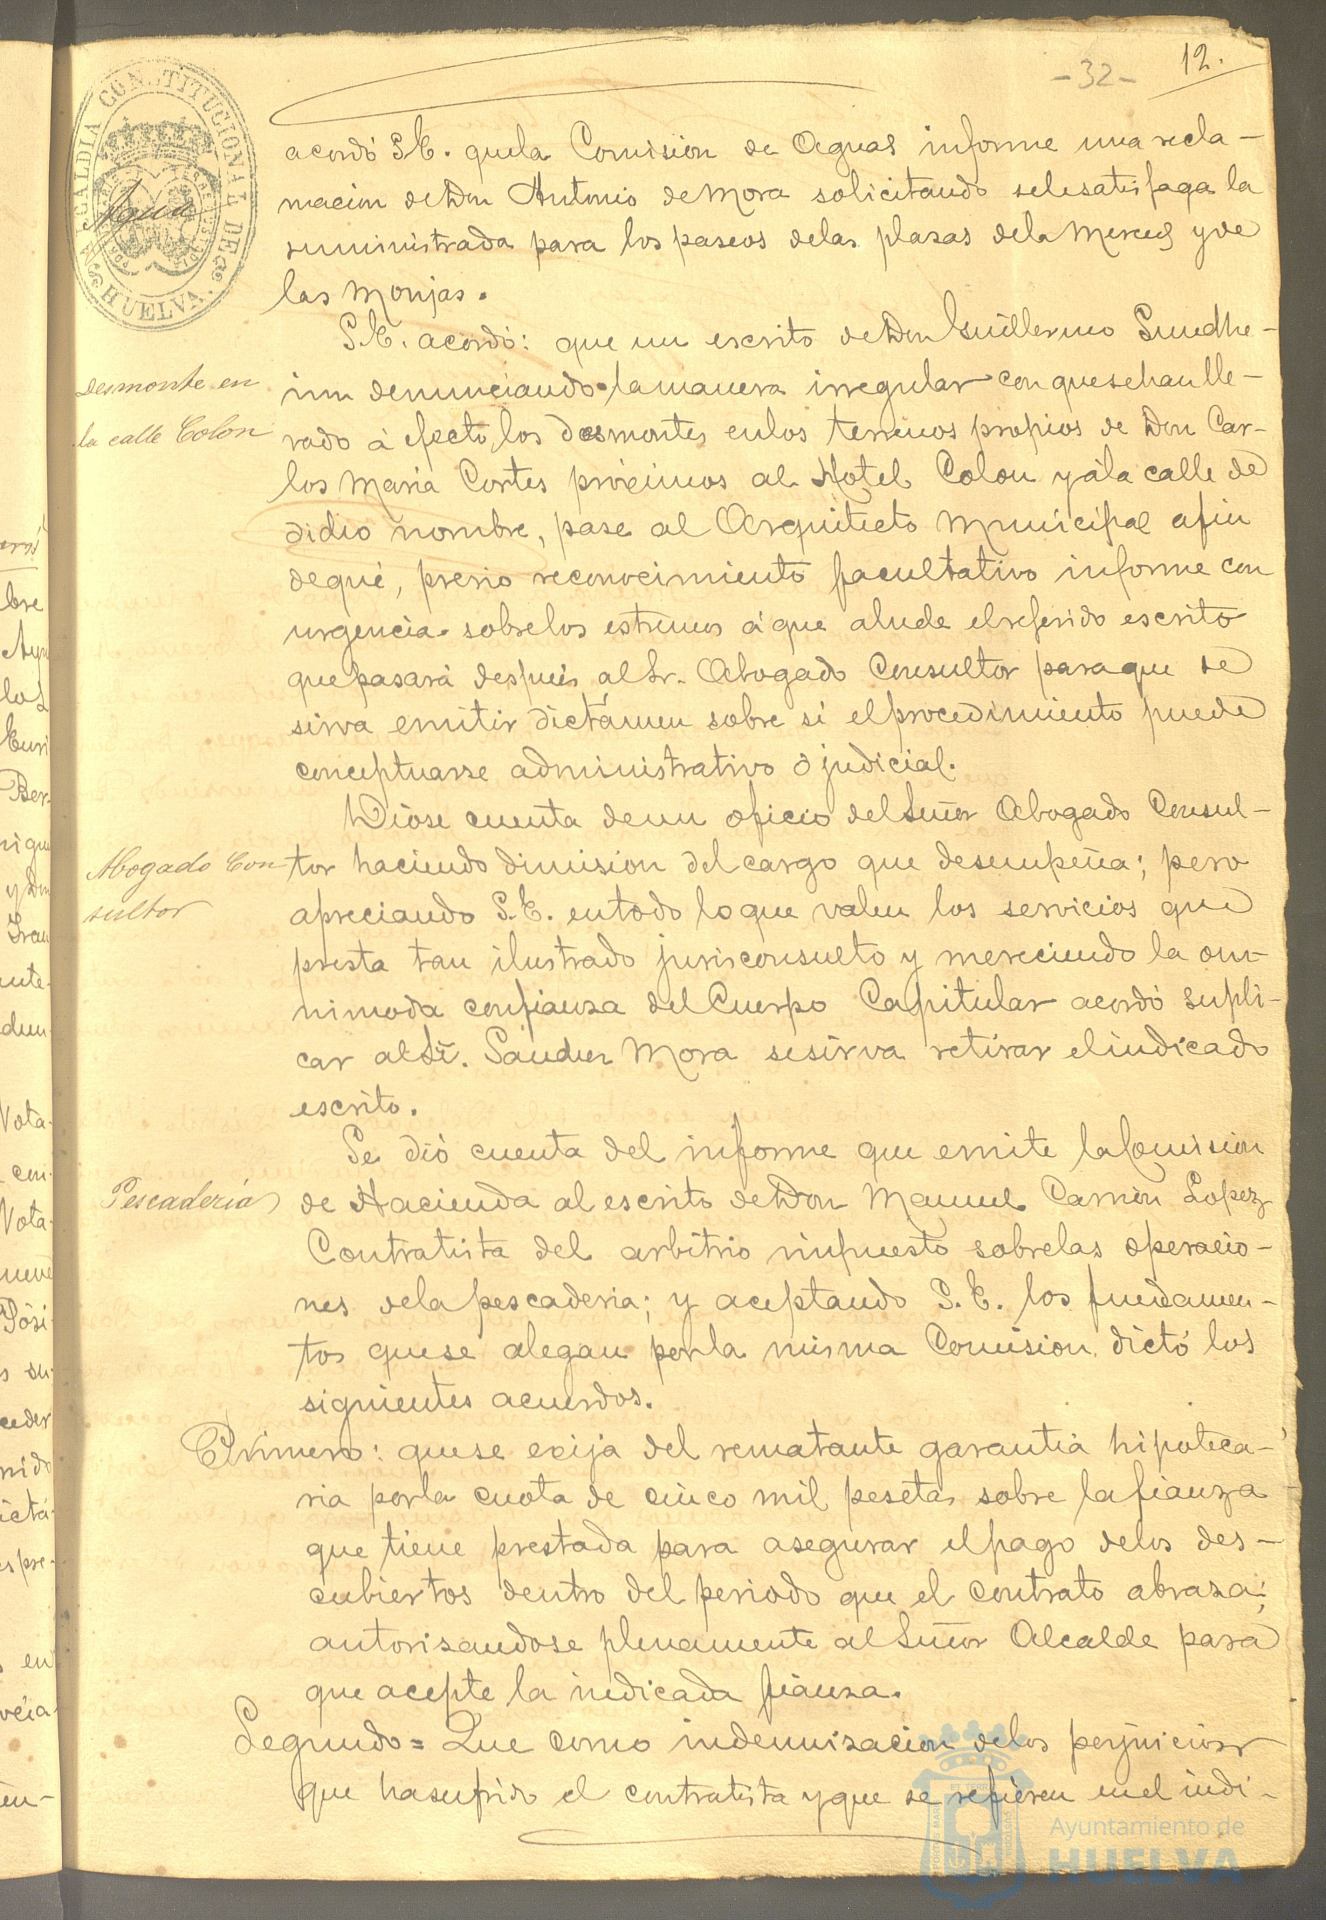 -32-
12.
ALCALDIA CONSTITUCIONAL DE HUELVA.
Agua
acordó S.E. que la Comision de Aguas informe una recla-
macion de Don Antonio de Mora solicitando se le satisfaga la
suministrada para los paseos de las plazas de la Merced y de
las Monjas.
S.E. acordó: que un escrito de Don Guillermo Sundhe-
Desmonte en
im denunciando la manera irregular con que se han lle-
la calle Colon
vado á efecto los desmontes en los terrenos propios de Don Car-
los Maria Cortes próximos al Hotel Colon y á la calle de
dicho nombre, pase al Arquitecto Municipal afin
de qué, previo reconocimiento facultativo informe con
urgencia sobre los estremos á que alude el referido escrito
que pasará después al Sr. Abogado Consultor para que se
sirva emitir dictámen sobre si el procedimiento puede
conceptuarse administrativo ó judicial.
Dióse cuenta de un oficio del Señor Abogado Consul-
Abogado Con
tor haciendo dimision del cargo que desempeña; pero
sultor
apreciando S.E. en todo lo que valen los servicios que
presta tan ilustrado jurisconsulto y mereciendo la om-
nimoda confianza del Cuerpo Capitular acordó supli-
car al Sr. Sánchez Mora se sirva retirar el indicado
escrito.
Se dió cuenta del informe que emite la Comision
Pescadería
de Hacienda al escrito de Don Manuel Carrion Lopez
Contratista del arbitrio impuesto sobre las operacio-
nes de la pescaderia; y aceptando S.E. los fundamen-
tos que se alegan por la misma Comision dictó los
siguientes acuerdos.
Primero: que se exija del rematante garantia hipoteca-
ria por la cuota de cinco mil pesetas sobre la fianza
que tiene prestada para asegurar el pago de los des-
cubiertos dentro del periodo que el contrato abraza;
autorizandose plenamente al Señor Alcalde para
que acepte la indicada fianza.
Segundo = Que como indemnizacion de los perjuicios
que ha sufrido el contratista y que se refieren en el indi-
Ayuntamiento de
HUELVA